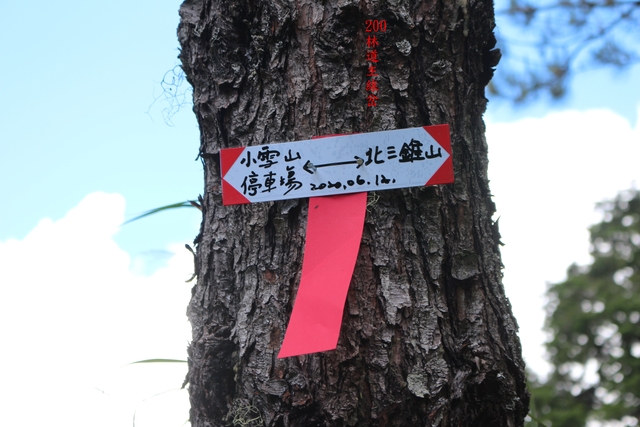 200
林道主線岔
小雪山
停車場
北三錐山
2020.06.12.